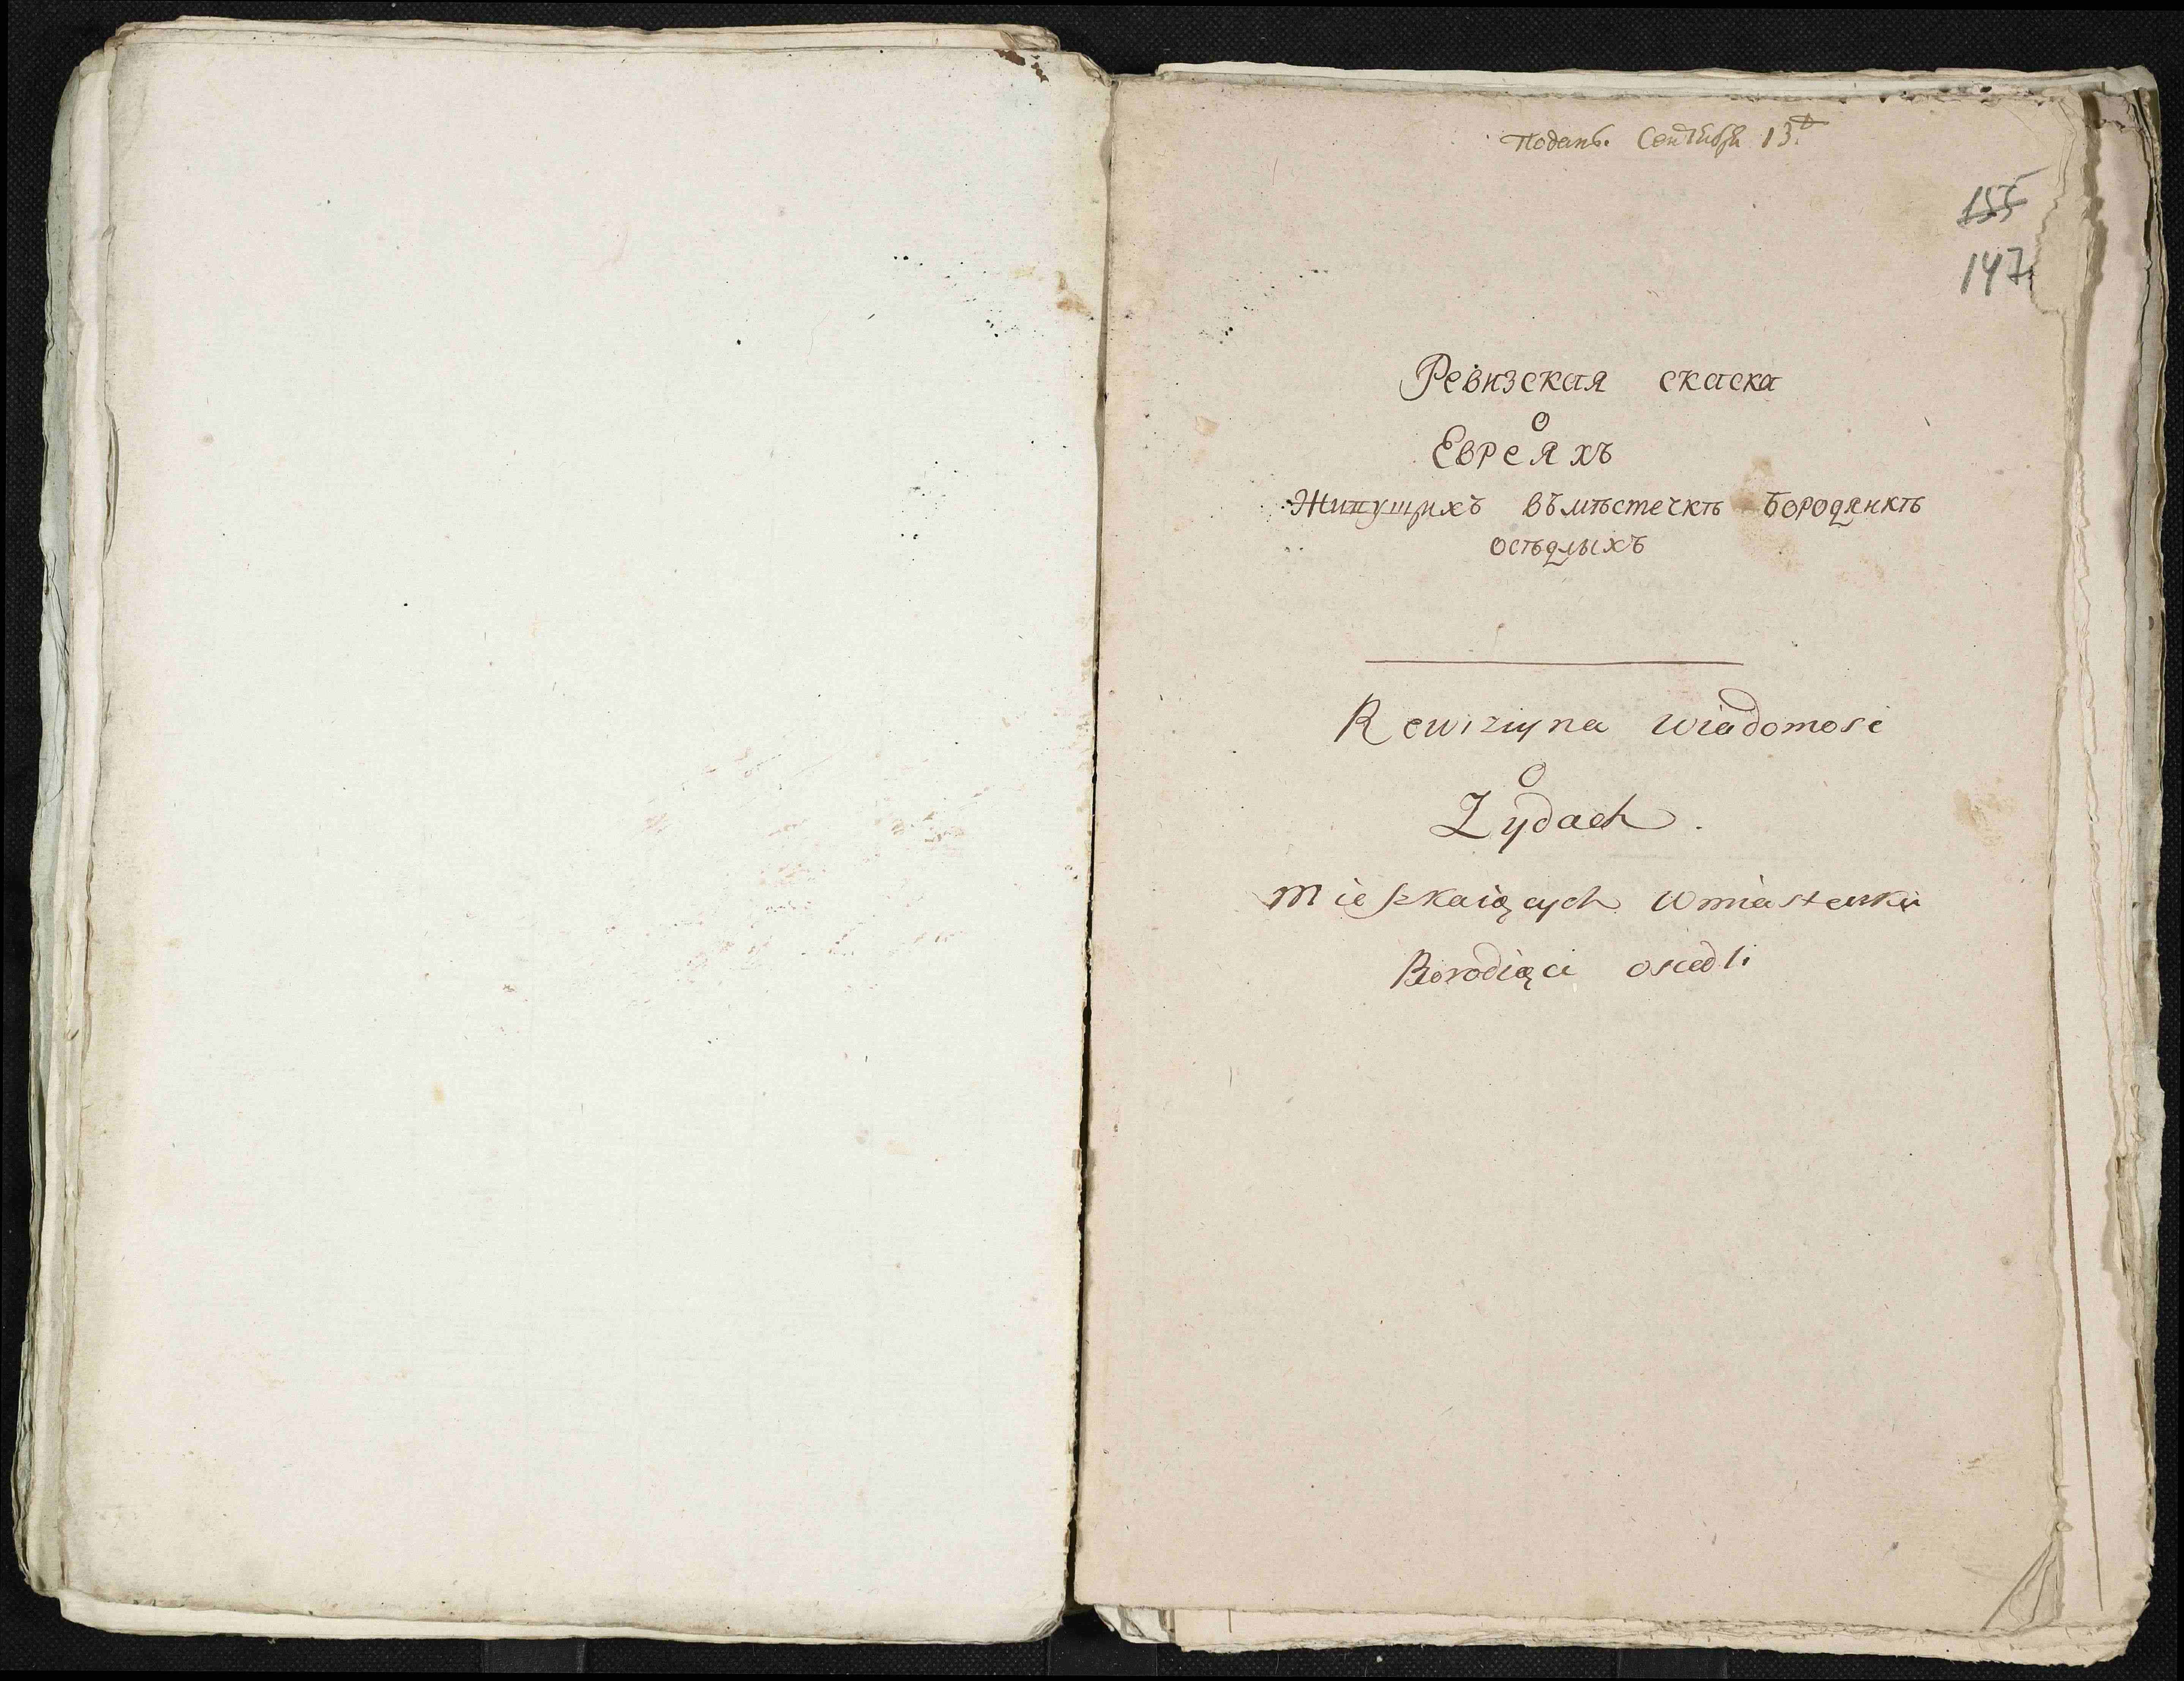 Поданъ. Сентября 13.
155
147
Ревизская скаска
О
Евреяхъ
Жипущихъ въмѣстечкѣ Бородянкѣ
осѣдлыхъ
Rewiziyna wiadomosć
O
Zydach.
Mieszkaiących wmiasteczku
Borodiące osiedli